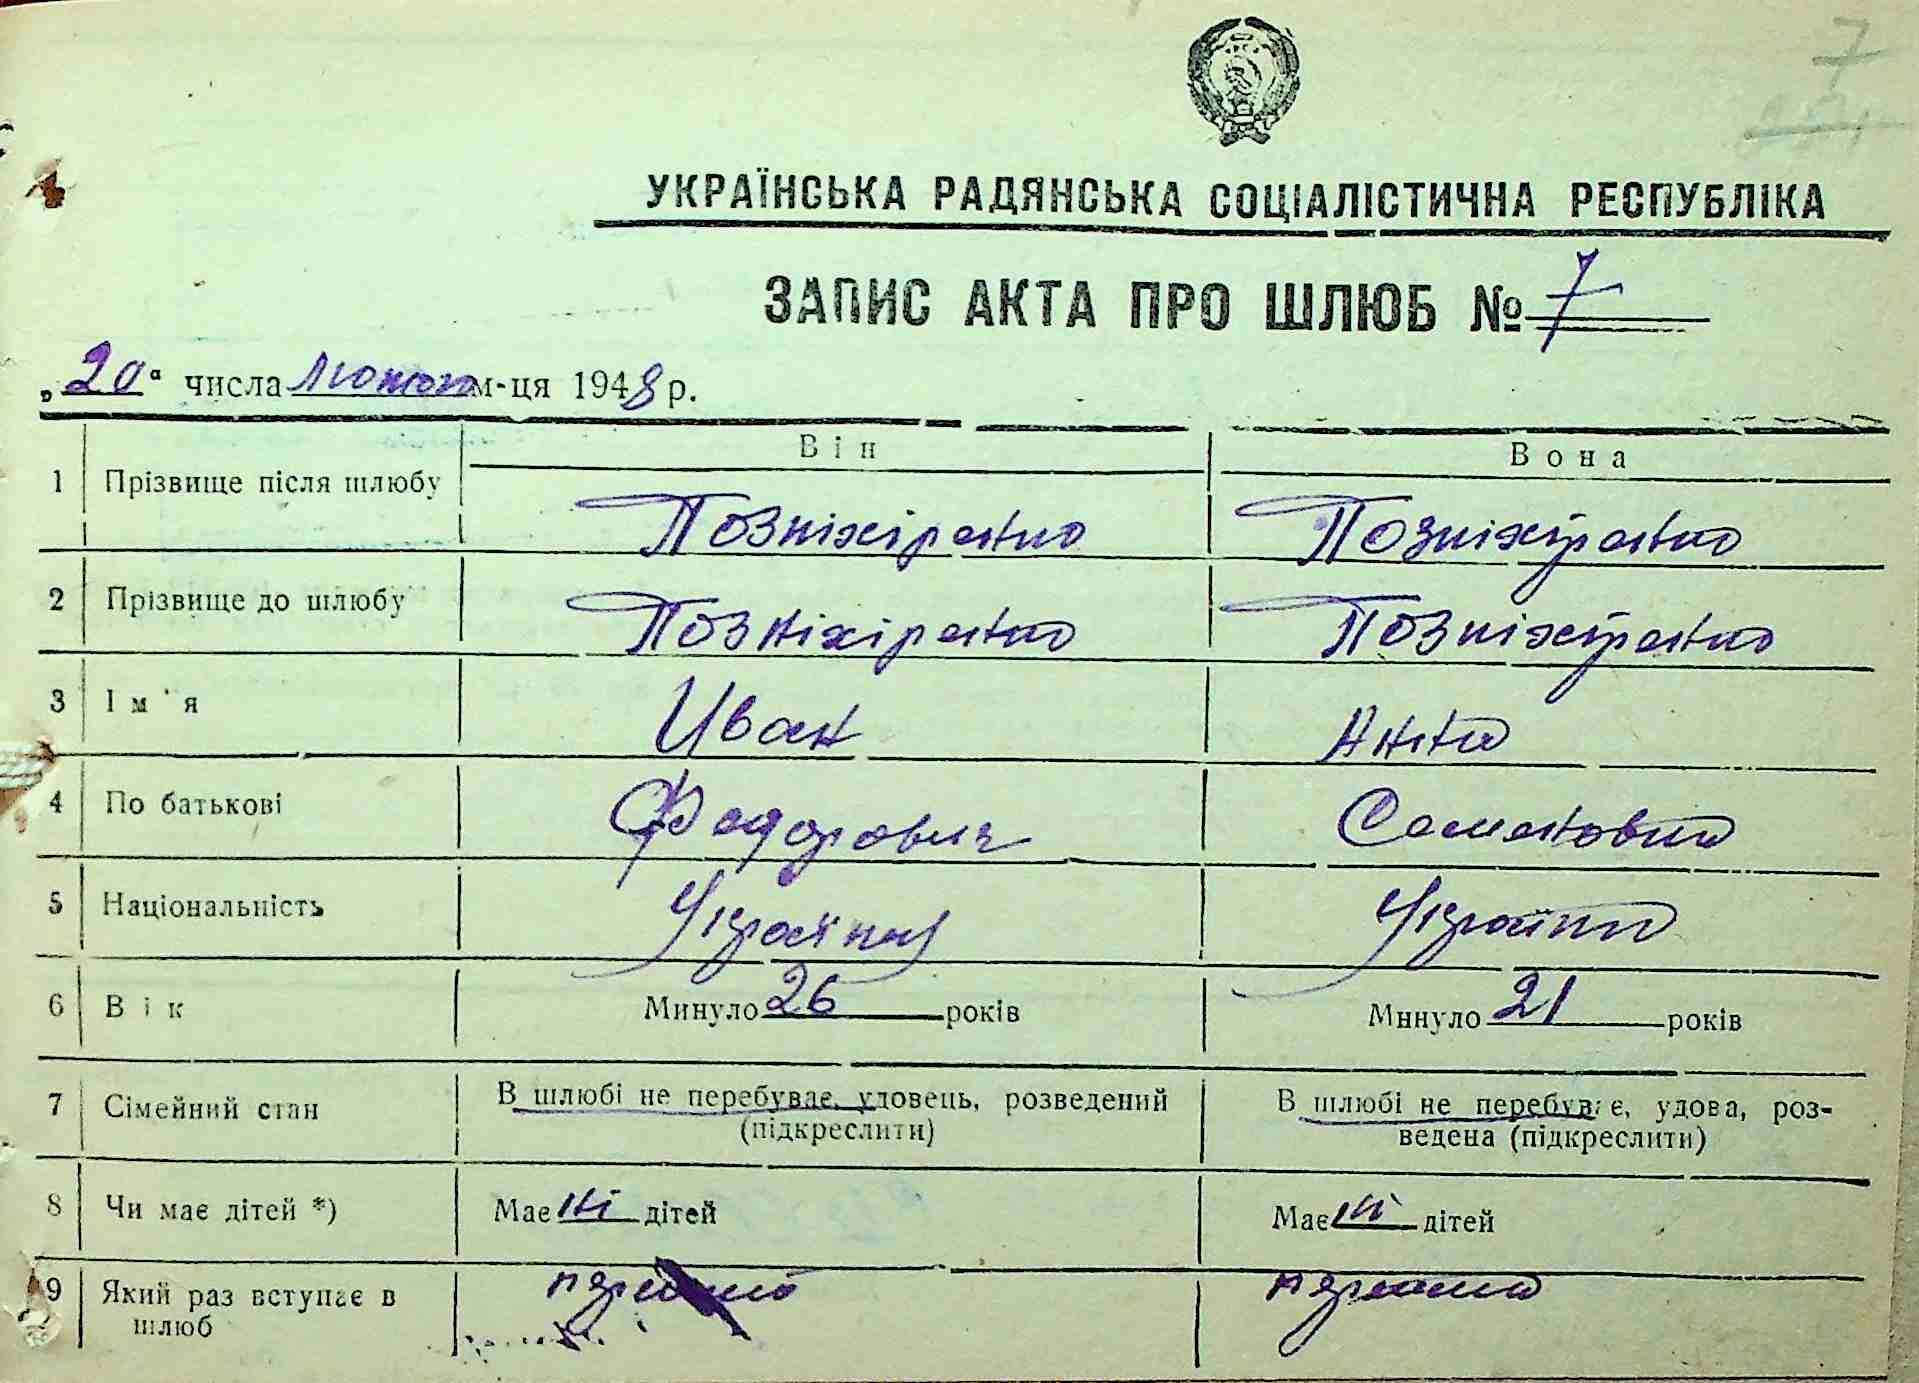 7
УКРАЇНСЬКА РАДЯНСЬКА СОЦІАЛІСТИЧНА РЕСПУБЛІКА
ЗАПИС АКТА ПРО ШЛЮБ № 7
„20“ числа лютого м-ця 1948 р.
Він Вона
1 Прізвище після шлюбу Позніхіренко Позніхіренко
2 Прізвище до шлюбу Позніхіренко Позніхіренко
3 Ім'я Иван Анна
4 По батькові Федорович Семеновна
5 Національність Українец Українка
6 Вік Минуло 26 років Минуло 21 років
7 Сімейний стан В шлюбі не перебуває, удовець, розведений В шлюбі не перебуває, удова, роз-
(підкреслити) ведена (підкреслити)
8 Чи має дітей *) Має ні дітей Має ні дітей
9 Який раз вступає в перший перший
шлюб